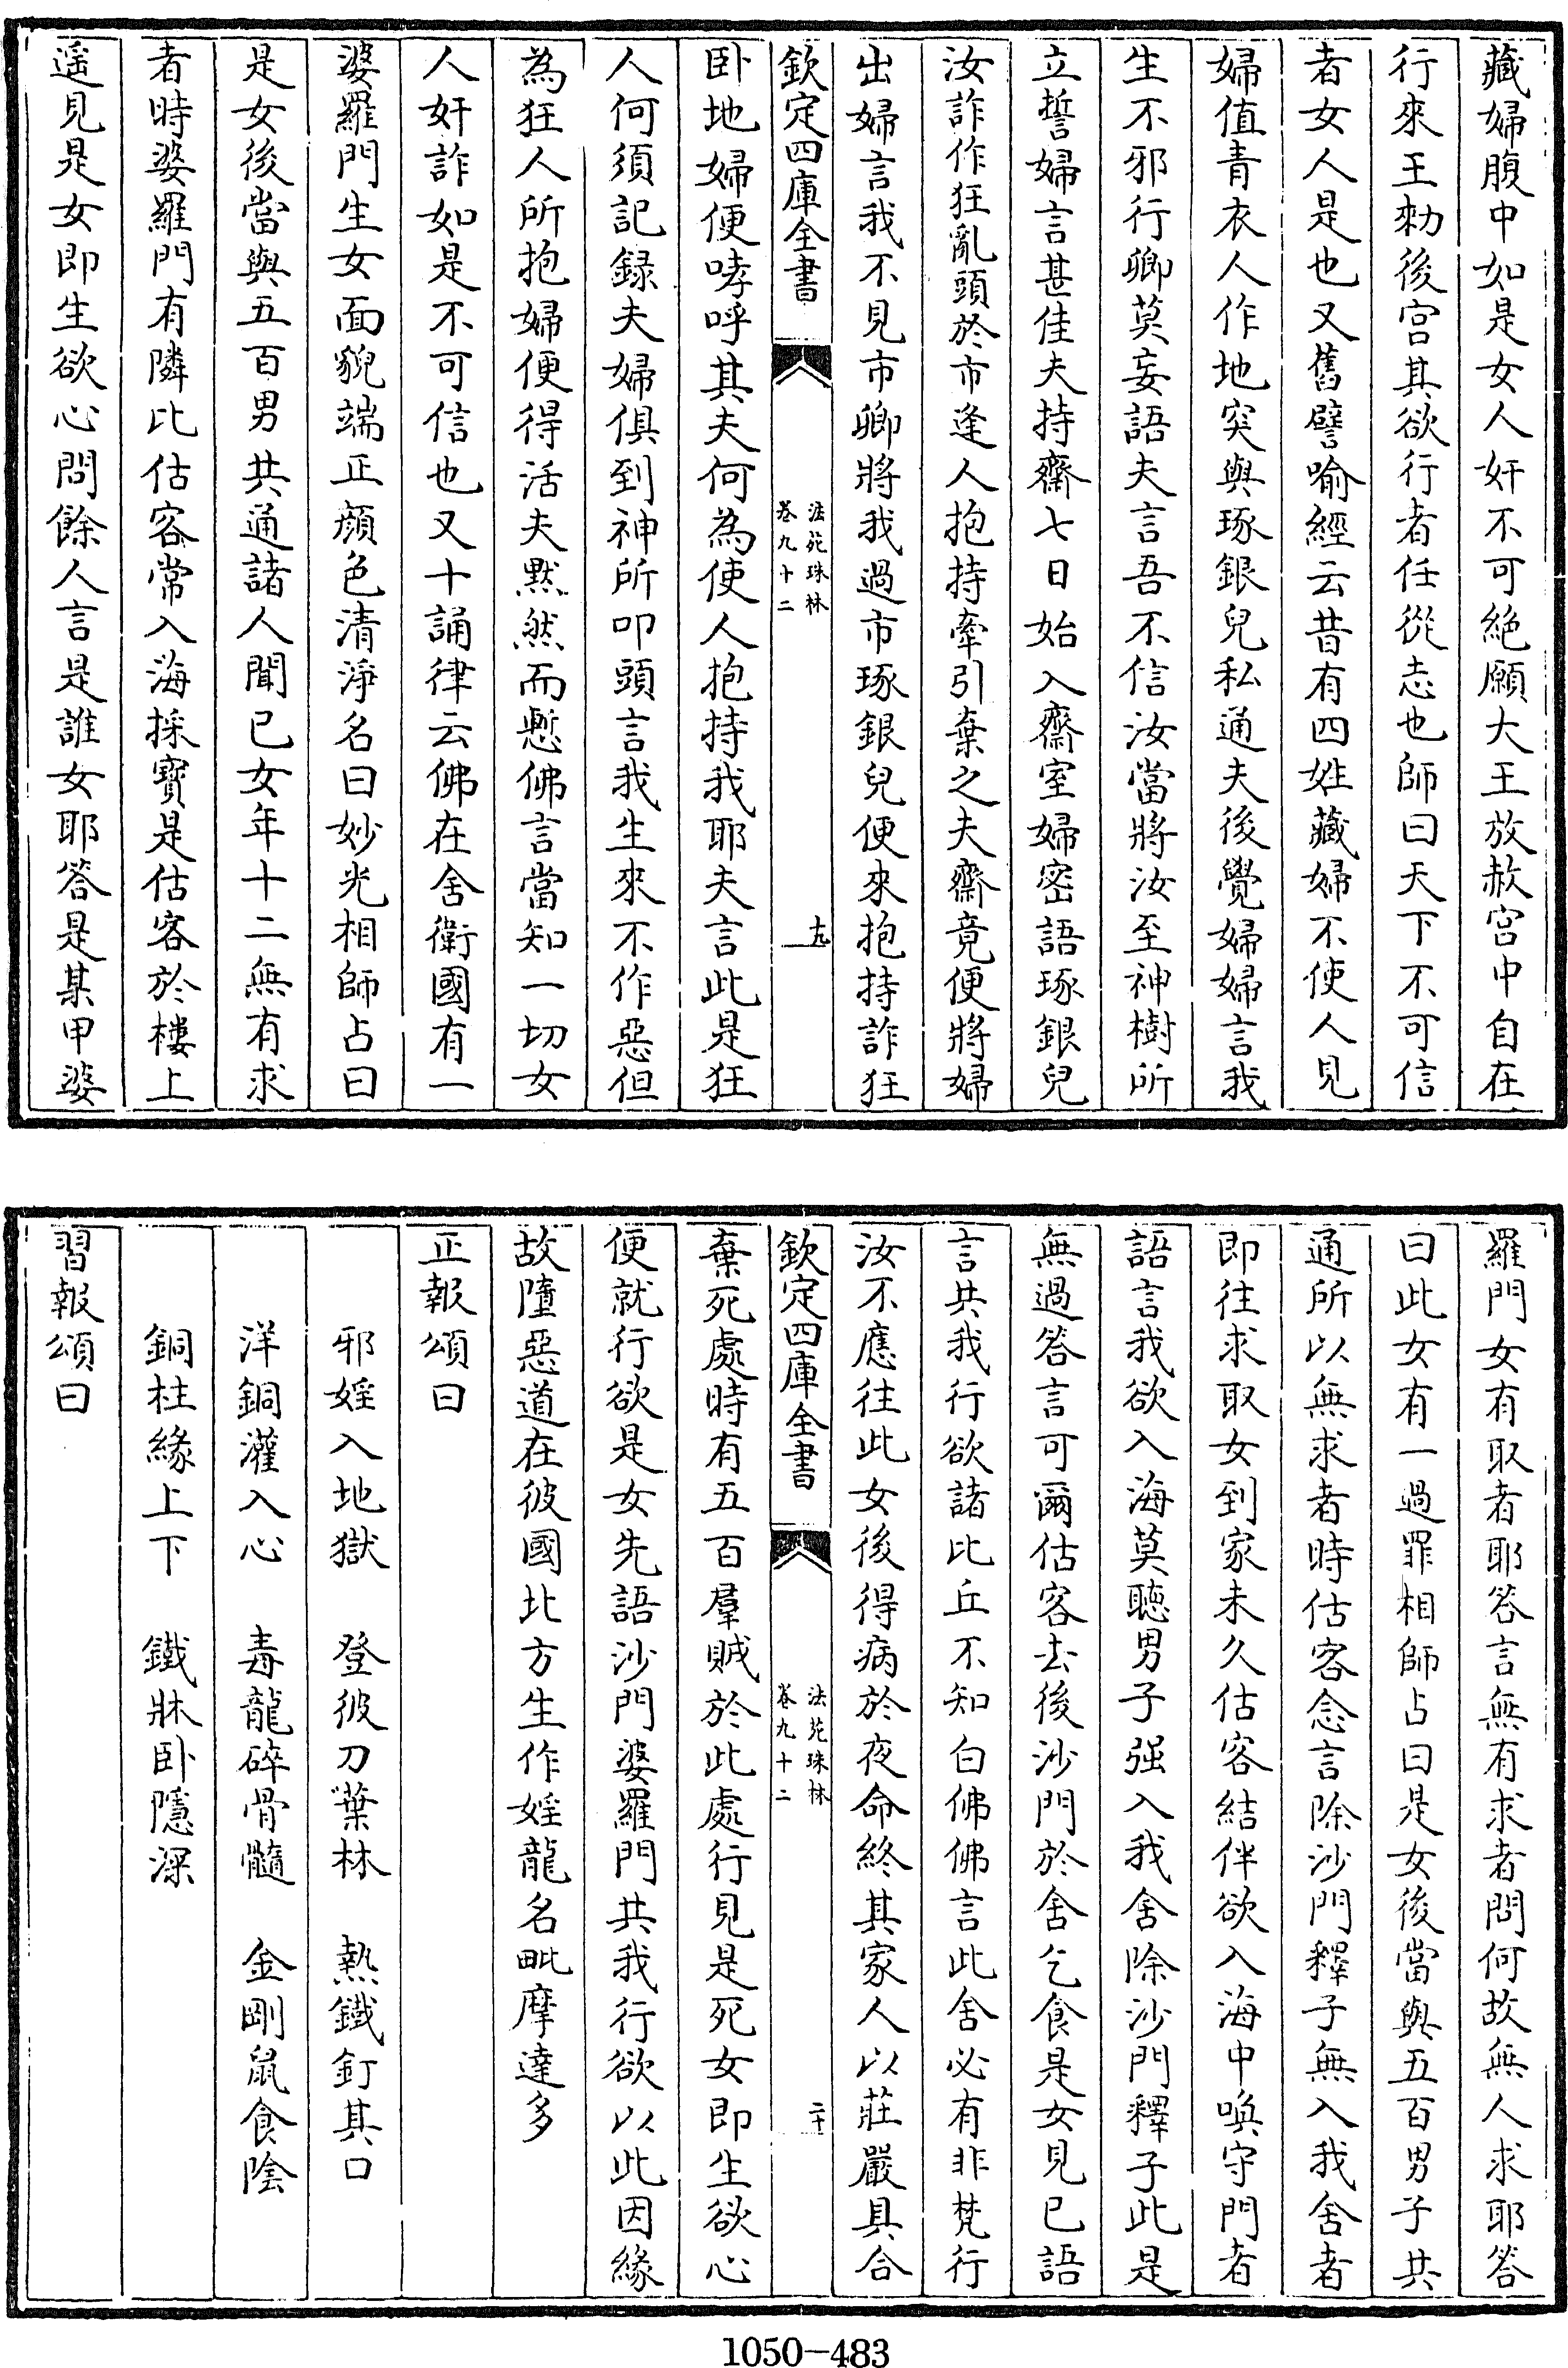 藏婦腹中如是女人奸不可絶願大王放赦宫中自在
行來王勑後宫其欲行者任從志也師曰天下不可信
者女人是也又舊譬喻經云昔有四姓藏婦不使人見
婦值青衣人作地突與琢銀兒私通夫後覺婦婦言我
生不邪行卿莫妄語夫言吾不信汝當將汝至神樹所
立誓婦言甚佳夫持齋七日始入齋室婦密語琢銀兒
汝詐作狂亂頭於市逢人抱持牽引棄之夫齋竟便將婦
出婦言我不見市卿將我過市琢銀兒便來抱持詐狂
欽定四庫全書
法苑珠林
卷九十二
十九
卧地婦便哮呼其夫何為使人抱持我耶夫言此是狂
人何須記録夫婦俱到神所叩頭言我生來不作惡但
為狂人所抱婦便得活夫黙然而慙佛言當知一切女
人奸詐如是不可信也又十誦律云佛在舍衛國有一
婆羅門生女面貌端正顔色清淨名曰妙光相師占曰
是女後當與五百男共通諸人聞已女年十二無有求
者時婆羅門有隣比估客常入海採寳是估客於樓上
遥見是女即生欲心問餘人言是誰女耶答是某甲婆
羅門女有取者耶答言無有求者問何故無人求耶答
曰此女有一過罪相師占曰是女後當與五百男子共
通所以無求者時估客念言除沙門釋子無入我舍者
即往求取女到家未久估客結伴欲入海中喚守門者
語言我欲入海莫聴男子强入我舍除沙門釋子此是
無過答言可爾估客去後沙門於舍乞食是女見已語
言共我行欲諸比丘不知白佛佛言此舍必有非梵行
汝不應往此女後得病於夜命終其家人以莊嚴具合
欽定四庫全書
法苑珠林
卷九十二
二十
棄死處時有五百羣賊於此處行見是死女即生欲心
便就行欲是女先語沙門婆羅門共我行欲以此因緣
故墮惡道在彼國北方生作婬龍名毗摩達多
正報頌曰
邪婬入地獄　登彼刀葉林　熱鐵釘其口
洋銅灌入心　毒龍碎骨髓　金剛鼠食陰
銅柱緣上下　鐵牀卧隱深
習報頌曰
1050-483